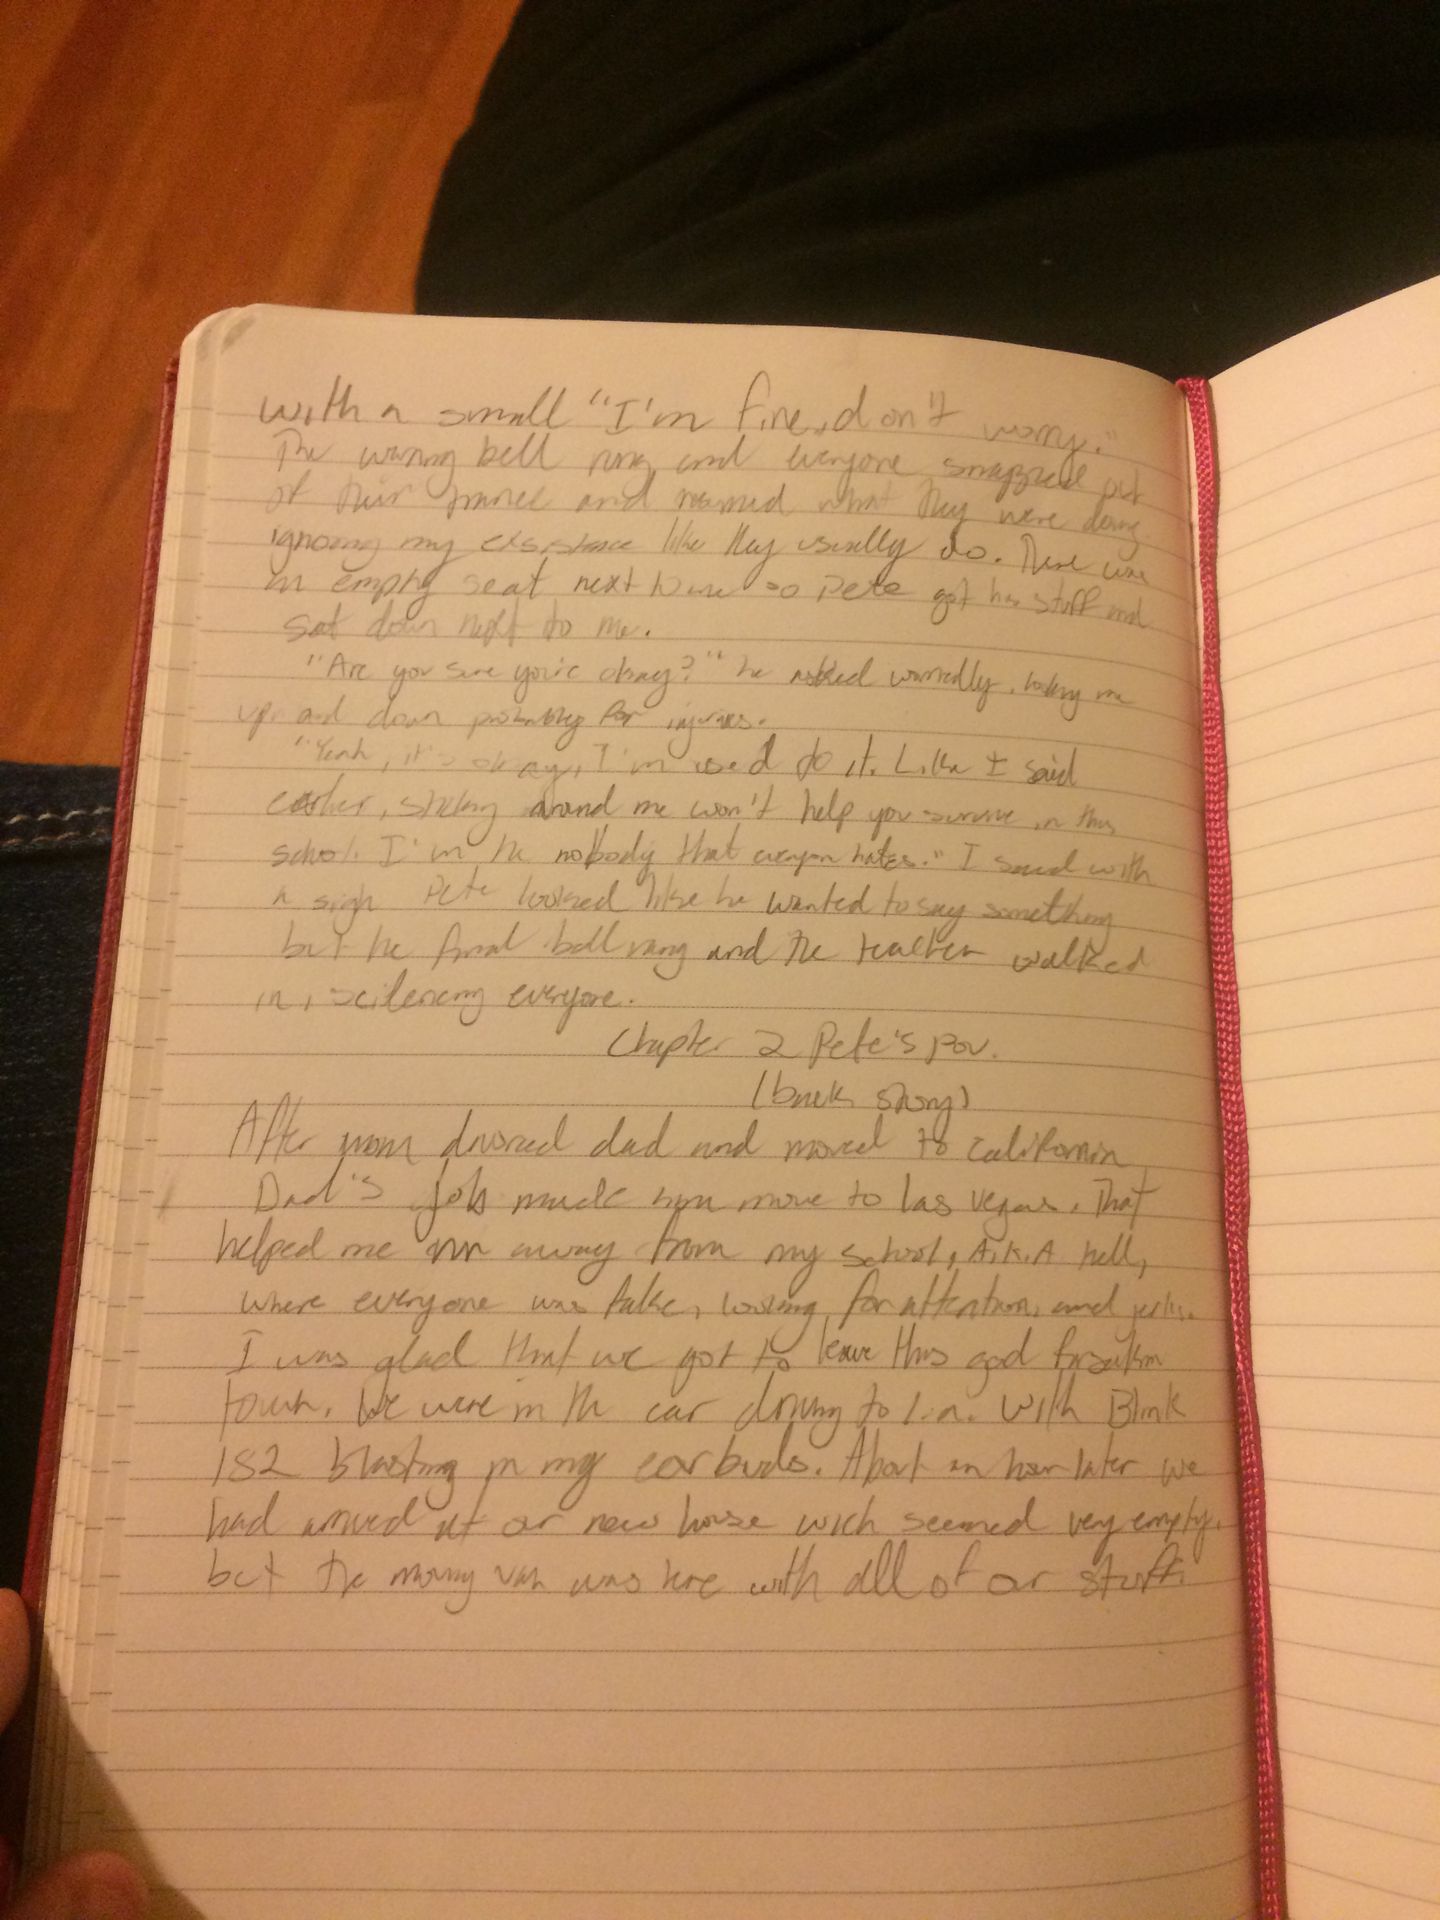 with a small "I'm fine, don't worry."
The warning bell rang and everyone snapped out
of their trance and resumed what they were doing
ignoring my exsistence like they usually do. There was
an empty seat next to me so Pete got his stuff and
sat down next to me.
"Are you sure you're okay?" he asked worriedly, looking me
up and down probably for injuries.
"Yeah, it's okay, I'm used to it. Like I said
earlier, sticking around me won't help you survive in this
school. I'm the nobody that everyone hates." I said with
a sigh Pete looked like he wanted to say something
but the final bell rang and the teacher walked
in, scilencing everyone.
Chapter 2 Pete's pov.
(back story)
After mom divorced dad and moved to California,
Dad's job made him move to las vegas. That
helped me run away from my school, A.K.A hell,
where everyone was fake, looking for attention, and jerks.
I was glad that we got to leave this god forsaken
town. We were in the car driving to l.a. with Blink
182 blasting in my earbuds. About an hour later we
had arrived at our new house wich seemed very empty,
but the moving van was here with all of our stuff.